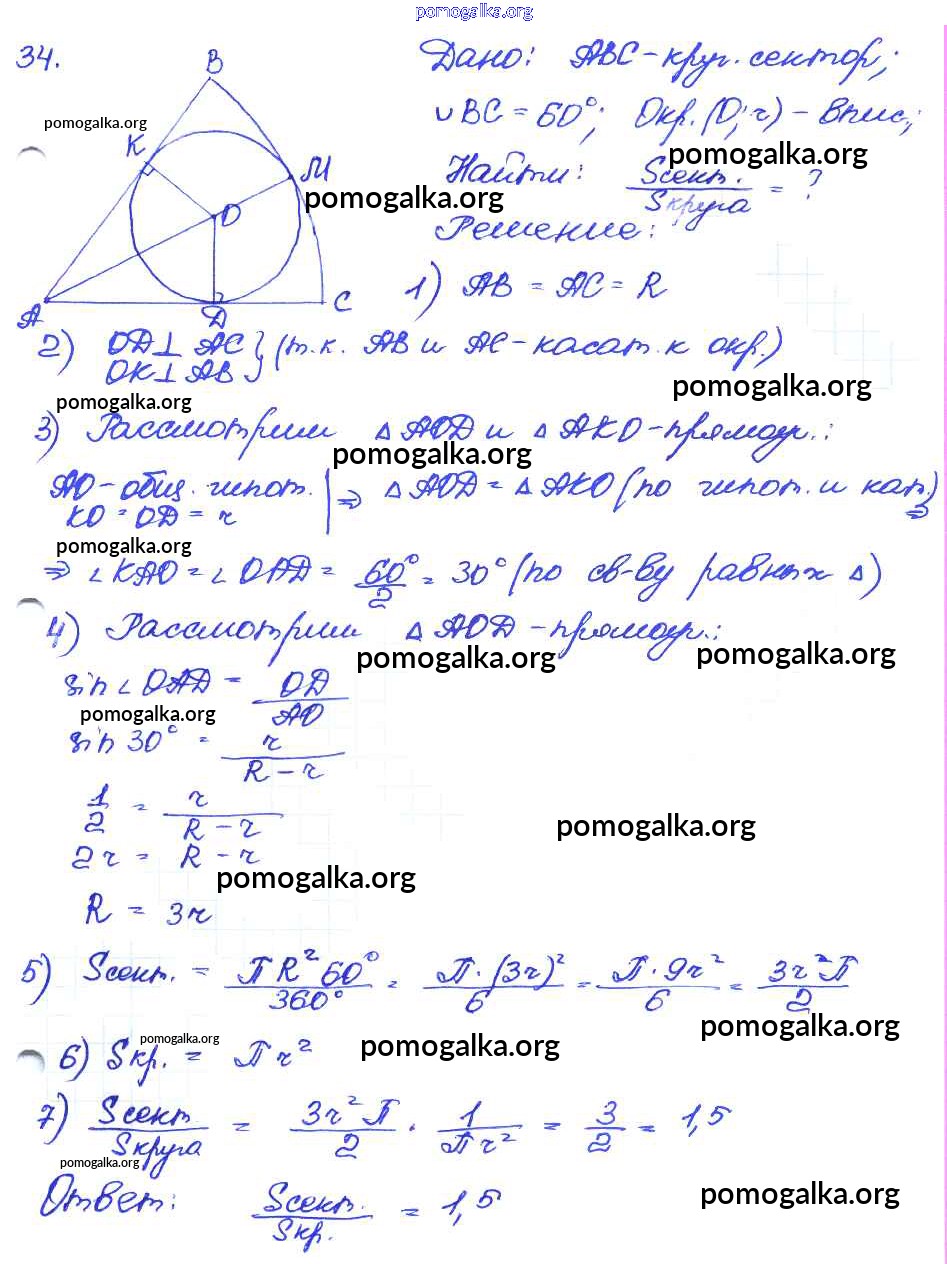 pomogalka.org
34.
B
K
M
O
A
D
C
pomogalka.org
pomogalka.org
Дано: ABC - круг. сектор;
∪BC = 60°; Окр. (O; r) - впис.;
pomogalka.org
Найти: Sсект. / Sкруга = ?
Решение:
1) AB = AC = R
2) OD ⊥ AC
OK ⊥ AB } (т.к. AB и AC - касат. к окр.)
pomogalka.org
pomogalka.org
3) Рассмотрим △ AOD и △ AKO - прямоуг.:
pomogalka.org
AO - общ. гипот.
KO = OD = r | ⇒ △ AOD = △ AKO (по гипот. и кат.) ⇒
pomogalka.org
⇒ ∠KAO = ∠OAD = 60°/2 = 30° (по св-ву равных △)
4) Рассмотрим △ AOD - прямоуг.:
pomogalka.org
pomogalka.org
sin ∠OAD = OD / AO
pomogalka.org
sin 30° = r / R - r
1/2 = r / R - r
pomogalka.org
2r = R - r
pomogalka.org
R = 3r
5) Sсект. = ПR² 60° / 360° = П·(3r)² / 6 = П·9r² / 6 = 3r²П / 2
pomogalka.org
pomogalka.org
pomogalka.org
6) Sкр. = Пr²
7) Sсект / Sкруга = 3r²П / 2 · 1 / Пr² = 3/2 = 1,5
pomogalka.org
pomogalka.org
Ответ: Sсект. / Sкр. = 1,5